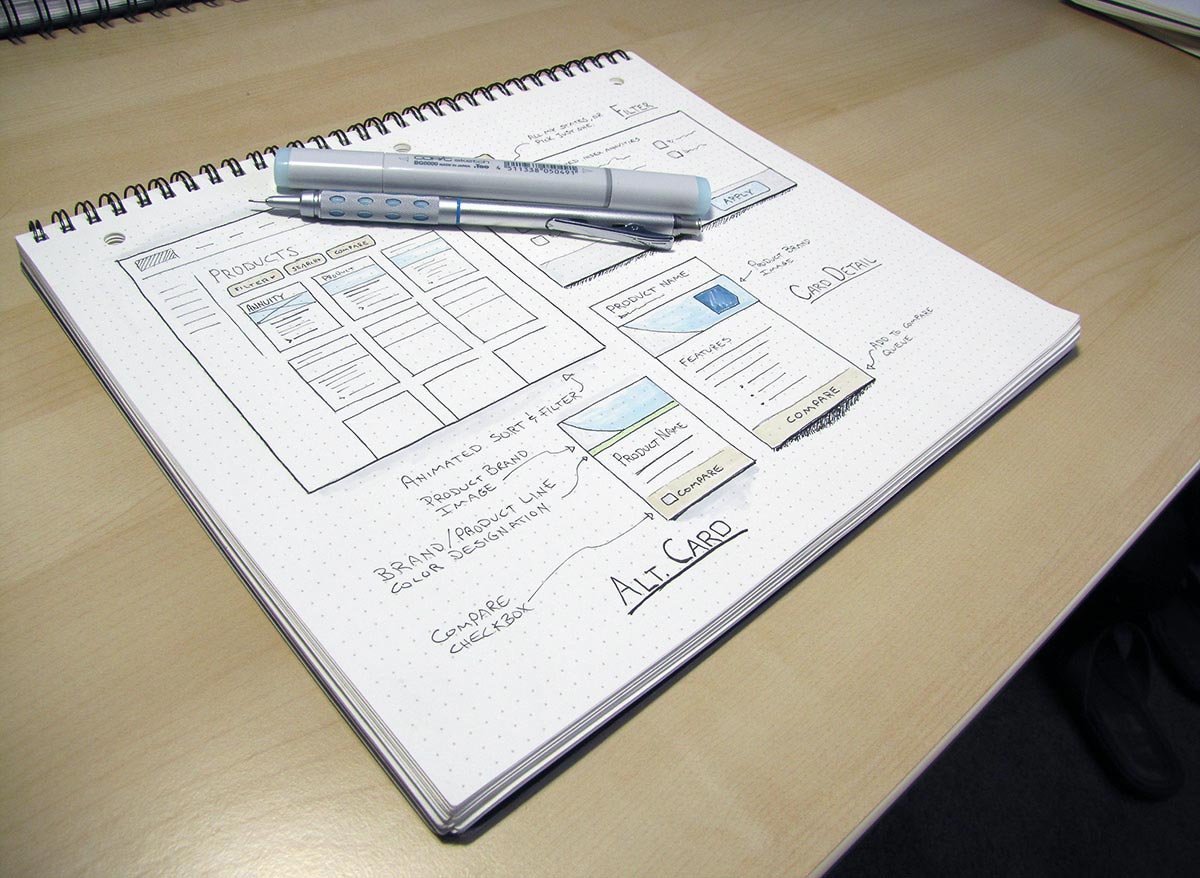 FILTER
ALL
OR
PICK JUST ONE.
INDEX ANNUITIES
APPLY
COPIC sketch
MADE IN JAPAN .Too
4 511338 050491
PRODUCTS
FILTER
SEARCH
COMPARE
ANNUITY
PRODUCT
CARD DETAIL
PRODUCT BRAND
IMAGE
PRODUCT NAME
FEATURES
COMPARE
ADD TO COMPARE
QUEUE
ANIMATED SORT & FILTER
PRODUCT BRAND
IMAGE
BRAND/PRODUCT LINE
COLOR DESIGNATION
COMPARE
CHECKBOX
PRODUCT NAME
COMPARE
ALT. CARD